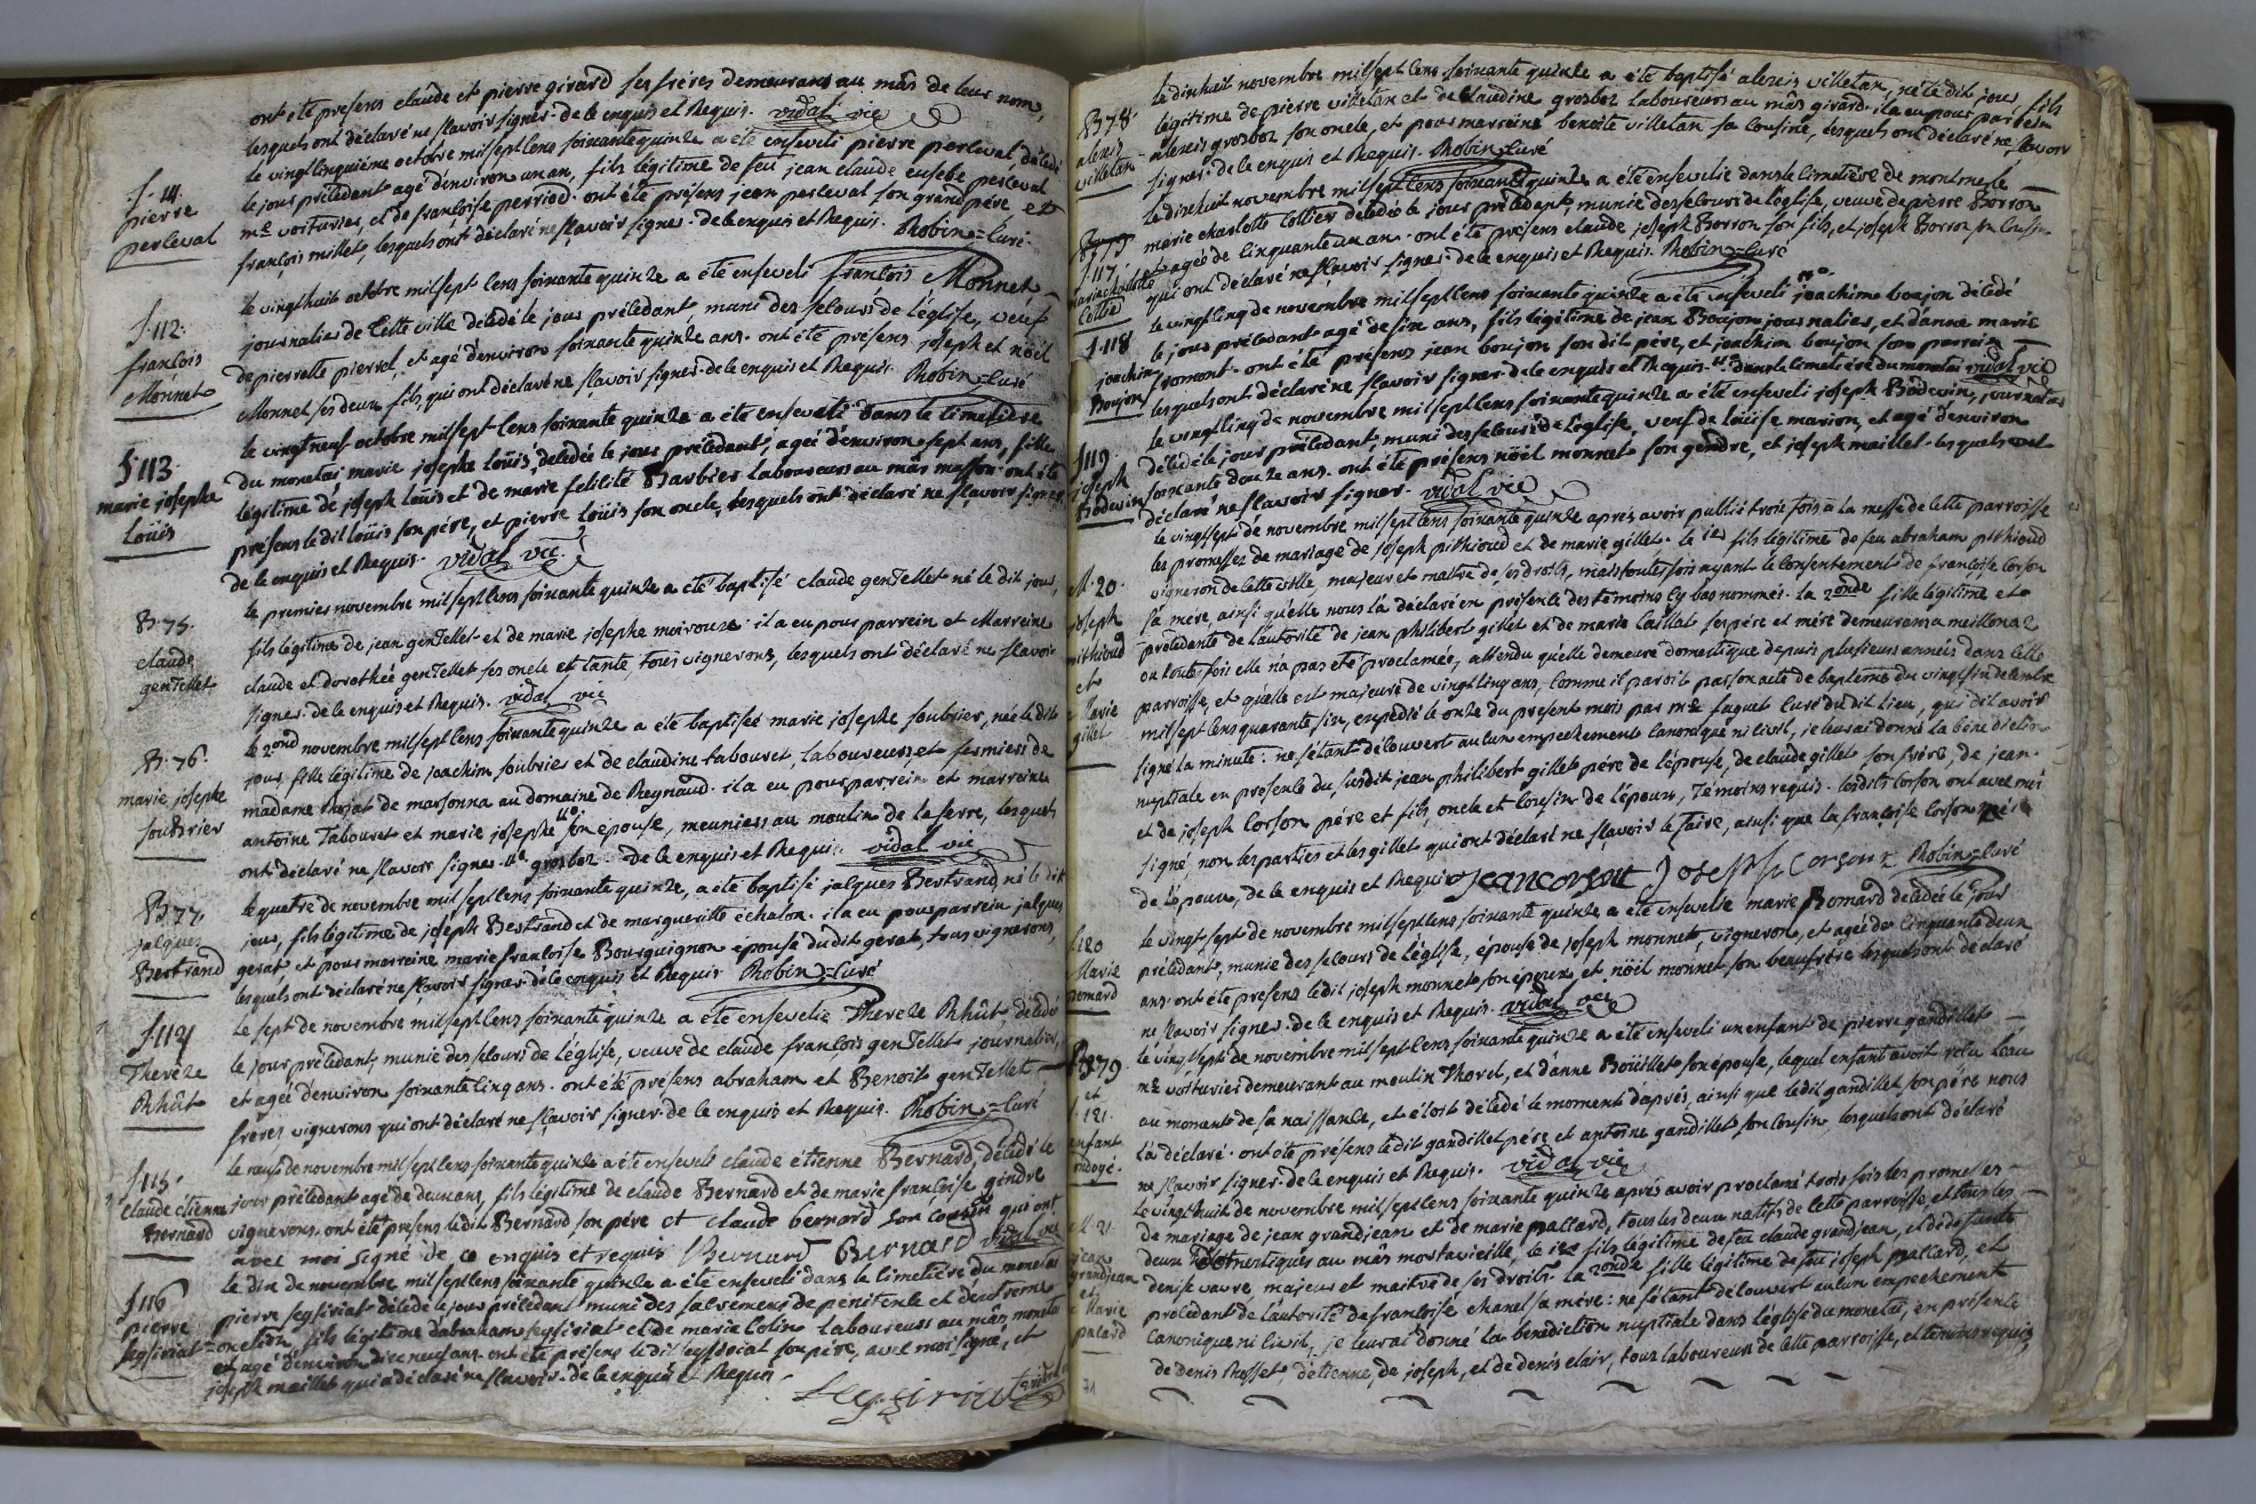 ont été presens claude et pierre girard ses frères demeurans au mâs de leur nom,
lesquels ont déclaré ne sçavoir signer. de ce enquis et Requis. vidal vic
le vingt cinquiéme octobre mil sept cens soixante quinze a été enseveli pierre perceval, décédé
le jour précédent agé d'environ un an, fils légitime de feu jean claude eusebe perceval
S. 111.
pierre
perceval
me voiturier, et de françoise perriod. ont été présens jean perceval son grand pére et
françois millet, lesquels ont déclaré ne sçavoir signer. de ce enquis et Requis. Robin = Curé.
S. 112.
françois
Monnet
le vingt huit octobre mil sept cens soixante quinze a été enseveli françois Monnet
journalier de cette ville décédé le jour précédant, muni des secours de l'église, veuf
de pierrette pierrel, et agé d'environ soixante quinze ans. ont été présens joseph et nöël
Monnet ses deux fils, qui ont déclaré ne sçavoir signer. de ce enquis et Requis. Robin = Curé
S. 113.
marie josephe
Loüis
le vingt neuf octobre mil sept cens soixante quinze a été enseveli dans le cimetière
du monetai, marie josephe Loüis, décédée le jour précédant, agée d'environ sept ans, fille
légitime de joseph Loüis et de marie felicité Barbier laboureurs au mâs masson. ont été
présens le dit Loüis son pére, et pierre Loüis son oncle, lesquels ont déclaré ne sçavoir signer
de ce enquis et Requis. vidal vic.
B. 75.
claude
genTellet
le premier novembre mil sept cens soixante quinze a été baptisé claude genTellet né le dit jour,
fils légitime de jean genTellet et de marie josephe moiroux. il a eu pour parrein et Marreine
claude et dorothée genTellet ses oncle et tante, tous vignerons, lesquels ont déclaré ne sçavoir
signer. de ce enquis et Requis. vidal vic
B. 76.
marie josephe
soubrier
le 2ond novembre mil sept cens soixante quinze a été baptisée marie josephe soubrier, née le dit
jour, fille légitime de joachim soubrier et de claudine tabouret, laboureurs, et fermiers de
madame Rojat de marsonna au domaine de Reynaud. il a eu pour parrein et marreine
antoine Tabouret et marie josephe son epouse, meuniers au moulin de la serre, lesquels
ont déclaré ne sçavoir signer. grosboz. De ce enquis et Requis. vidal vic
B. 77.
jacques
Bertrand
le quatre de novembre mil sept cens soixante quinze, a été baptisé jacques Bertrand, né le dit
jour, fils légitime de joseph Bertrand et de margueritte échalon. il a eu pour parrein jacques
gerat et pour marreine marie françoise Bourguignon épouse du dit gerat, tous vignerons,
lesquels ont déclaré ne sçavoir signer. de ce enquis et Requis Robin = Curé
S. 114
Thereze
Rhût
le sept de novembre mil sept cens soixante quinze a été ensevelie Thereze Rhût, décédée
le jour précédant, munie des secours de l'église, veuve de claude françois genTellet journalier,
et agée d'environ soixante cinq ans. ont été présens abraham et Benoit genTellet
fréres vignerons qui ont déclaré ne sçavoir signer. de ce enquis et Requis. Robin = Curé
S. 115.
claude étienne
Bernard
le neuf de novembre mil sept cens soixante quinze a été enseveli claude étienne Bernard, décédé le
jour précédant agé de deux ans, fils légitime de claude Bernard et de marie françoise gindre
vignerons. ont été presens ledit Bernard, son pére et claude bernard son cousin qui ont
avec moi signé de ce enquis et requis Bernard Bernard vidal vic
S. 116
pierre
seyssiriat
le dix de novembre mil sept cens soixante quinze a été enseveli dans le cimetiére du monetai
pierre seyssiriat décédé le jour précédant muni des sacremens de pénitence et d'extreme
onction, fils légitime d'abraham seyssiriat et de marie Colin laboureurs au mâs monetai
et agé d'environ dix neuf ans. ont été présens le dit seyssiriat son pére, avec moi signé, et
joseph maillet qui a déclaré ne sçavoir. de ce enquis et Requis.
Seyssiriat vidal
B. 78.
alexis
villetan
le dix huit novembre mil sept cens soixante quinze a été baptisé alexis villetan, né le dit jour, fils
légitime de pierre villetan et de Claudine grosboz laboureurs au mâs girard. il a eu pour parrein
alexis grosboz son oncle, et pour marreine benoite villetan sa cousine, lesquels ont déclaré ne sçavoir
signer. de ce enquis et Requis. Robin = Curé
S. 117.
marie charlotte
Collier
le dix huit novembre mil sept cens soixante quinze a été ensevelie dans le cimetiére de montmesle
marie charlotte Collier décédée le jour précédant, munie des secours de l'église, veuve de pierre Borron
agée de cinquante un an. ont été présens claude joseph Borron son fils, et joseph Borron son Cousin
qui ont déclaré ne sçavoir signer. de ce enquis et Requis. Robin = Curé
S. 118
joachim
Boujon
le vingt cinq de novembre mil sept cens soixante quinze a été enseveli joachim boujon décédé
le jour précédant agé de six ans, fils légitime de jean Boujon journalier, et d'anne marie
fromont. ont été présens jean boujon son dit pére, et joachim boujon son parrein
lesquels ont déclaré ne sçavoir signer. de ce enquis et Requis. dans le cimetiére du monetai vidal vic
S. 119.
joseph
Bodewin
le vingt cinq de novembre mil sept cens soixante quinze a été enseveli joseph Bodewin, journalier
décédé le jour précédant, muni des secours de l'église, veuf de Loüise marion, et agé d'environ
soixante douze ans. ont été présens nöël monnet son gendre, et joseph maillet lesquels ont
déclaré ne sçavoir signer. vidal vic
M. 20.
joseph
pithioud
et
Marie
gillet
le vingt sept de novembre mil sept cens soixante quinze aprés avoir publié trois fois à la messe de cette parroisse
les promesses de mariage de joseph pithioud et de marie gillet. le 1er fils légitime de feu abraham pithioud
vigneron de cette ville, majeur et maitre de ses droits, mais toutesfois ayant le consentement de françoise Corson
sa mére, ainsi qu'elle nous l'a déclaré en présence des témoins cy bas nommés. la 2onde fille légitime et
procédante de l'autorité de jean philibert gillet et de marie Caillat ses pére et mére demeurans a meillonaz
ou toutes fois elle n'a pas été proclamée, attendu qu'elle demeure domestique depuis plusieurs années dans cette
parroisse, et qu'elle est majeure de vingt cinq ans, comme il paroit par son acte de baptême du vingt six decembre
mil sept cens quarante six, expedié le onze du present mois par mre faguet Curé du dit lieu, qui dit avoir
signé la minute: ne s'étant découvert aucun empechement canonique ni civil, je leur ai donné la bénédiction
nuptiale en présence du susdit jean philibert gillet pére de l'épouse, de claude gillet son frére, de jean
et de joseph Corson pére et fils, oncle et cousin de l'époux, Témoins requis. lesdits Corson ont avec moi
signé, non les parties et les gillet qui ont déclaré ne sçavoir le faire, ainsi que la françoise Corson mére
de l'époux, de ce enquis et Requis jean corson Joseph Corson Robin = Curé
S. 120
Marie
Romard
le vingt sept de novembre mil sept cens soixante quinze a été ensevelie marie Romard décédée le jour
précédant, munie des secours de l'église, épouse de joseph monnet, vigneron, et agée de cinquante deux
ans. ont été présens ledit joseph monnet son époux, et nöël monnet son beaufrére lesquels ont déclaré
ne sçavoir signer. de ce enquis et Requis. vidal vic
B. 79.
et
S. 121.
enfant
ondoyé.
le vingt sept de novembre mil sept cens soixante quinze a été enseveli un enfant de pierre gandillet
me voiturier demeurant au moulin Thorel, et d'anne Boüillet son épouse, lequel enfant avoit reçu l'eau
au moment de sa naissance, et étoit décédé le moment d'aprés, ainsi que ledit gandillet son pére nous
l'a déclaré. ont été présens ledit gandillet pére, et antoine gandillet son cousin lesquels ont déclaré
ne sçavoir signer. de ce enquis et Requis. vidal vic
M. 21.
jean
grandjean
et
Marie
palard
le vingt huit de novembre mil sept cens soixante quinze aprés avoir proclamé trois fois les promesses
de mariage de jean grandjean et de marie pallard, tous les deux natifs de cette parroisse, et tous les
deux domestiques au mâs mortavieille, le 1er fils légitime de feu claude grandjean, et de défunte
denise vavre, majeur et maitre de ses droits. la 2onde fille légitime de feu joseph pallard, et
procédant de l'autorité de françoise chanel sa mére: ne s'étant découvert aucun empechement
canonique ni civil, je leur ai donné la bénédiction nuptiale dans l'église du monetai, en présence
de denis Rosset, d'étienne, de joseph, et de denis clair, tous laboureurs de cette parroisse, et témoins requis,
71